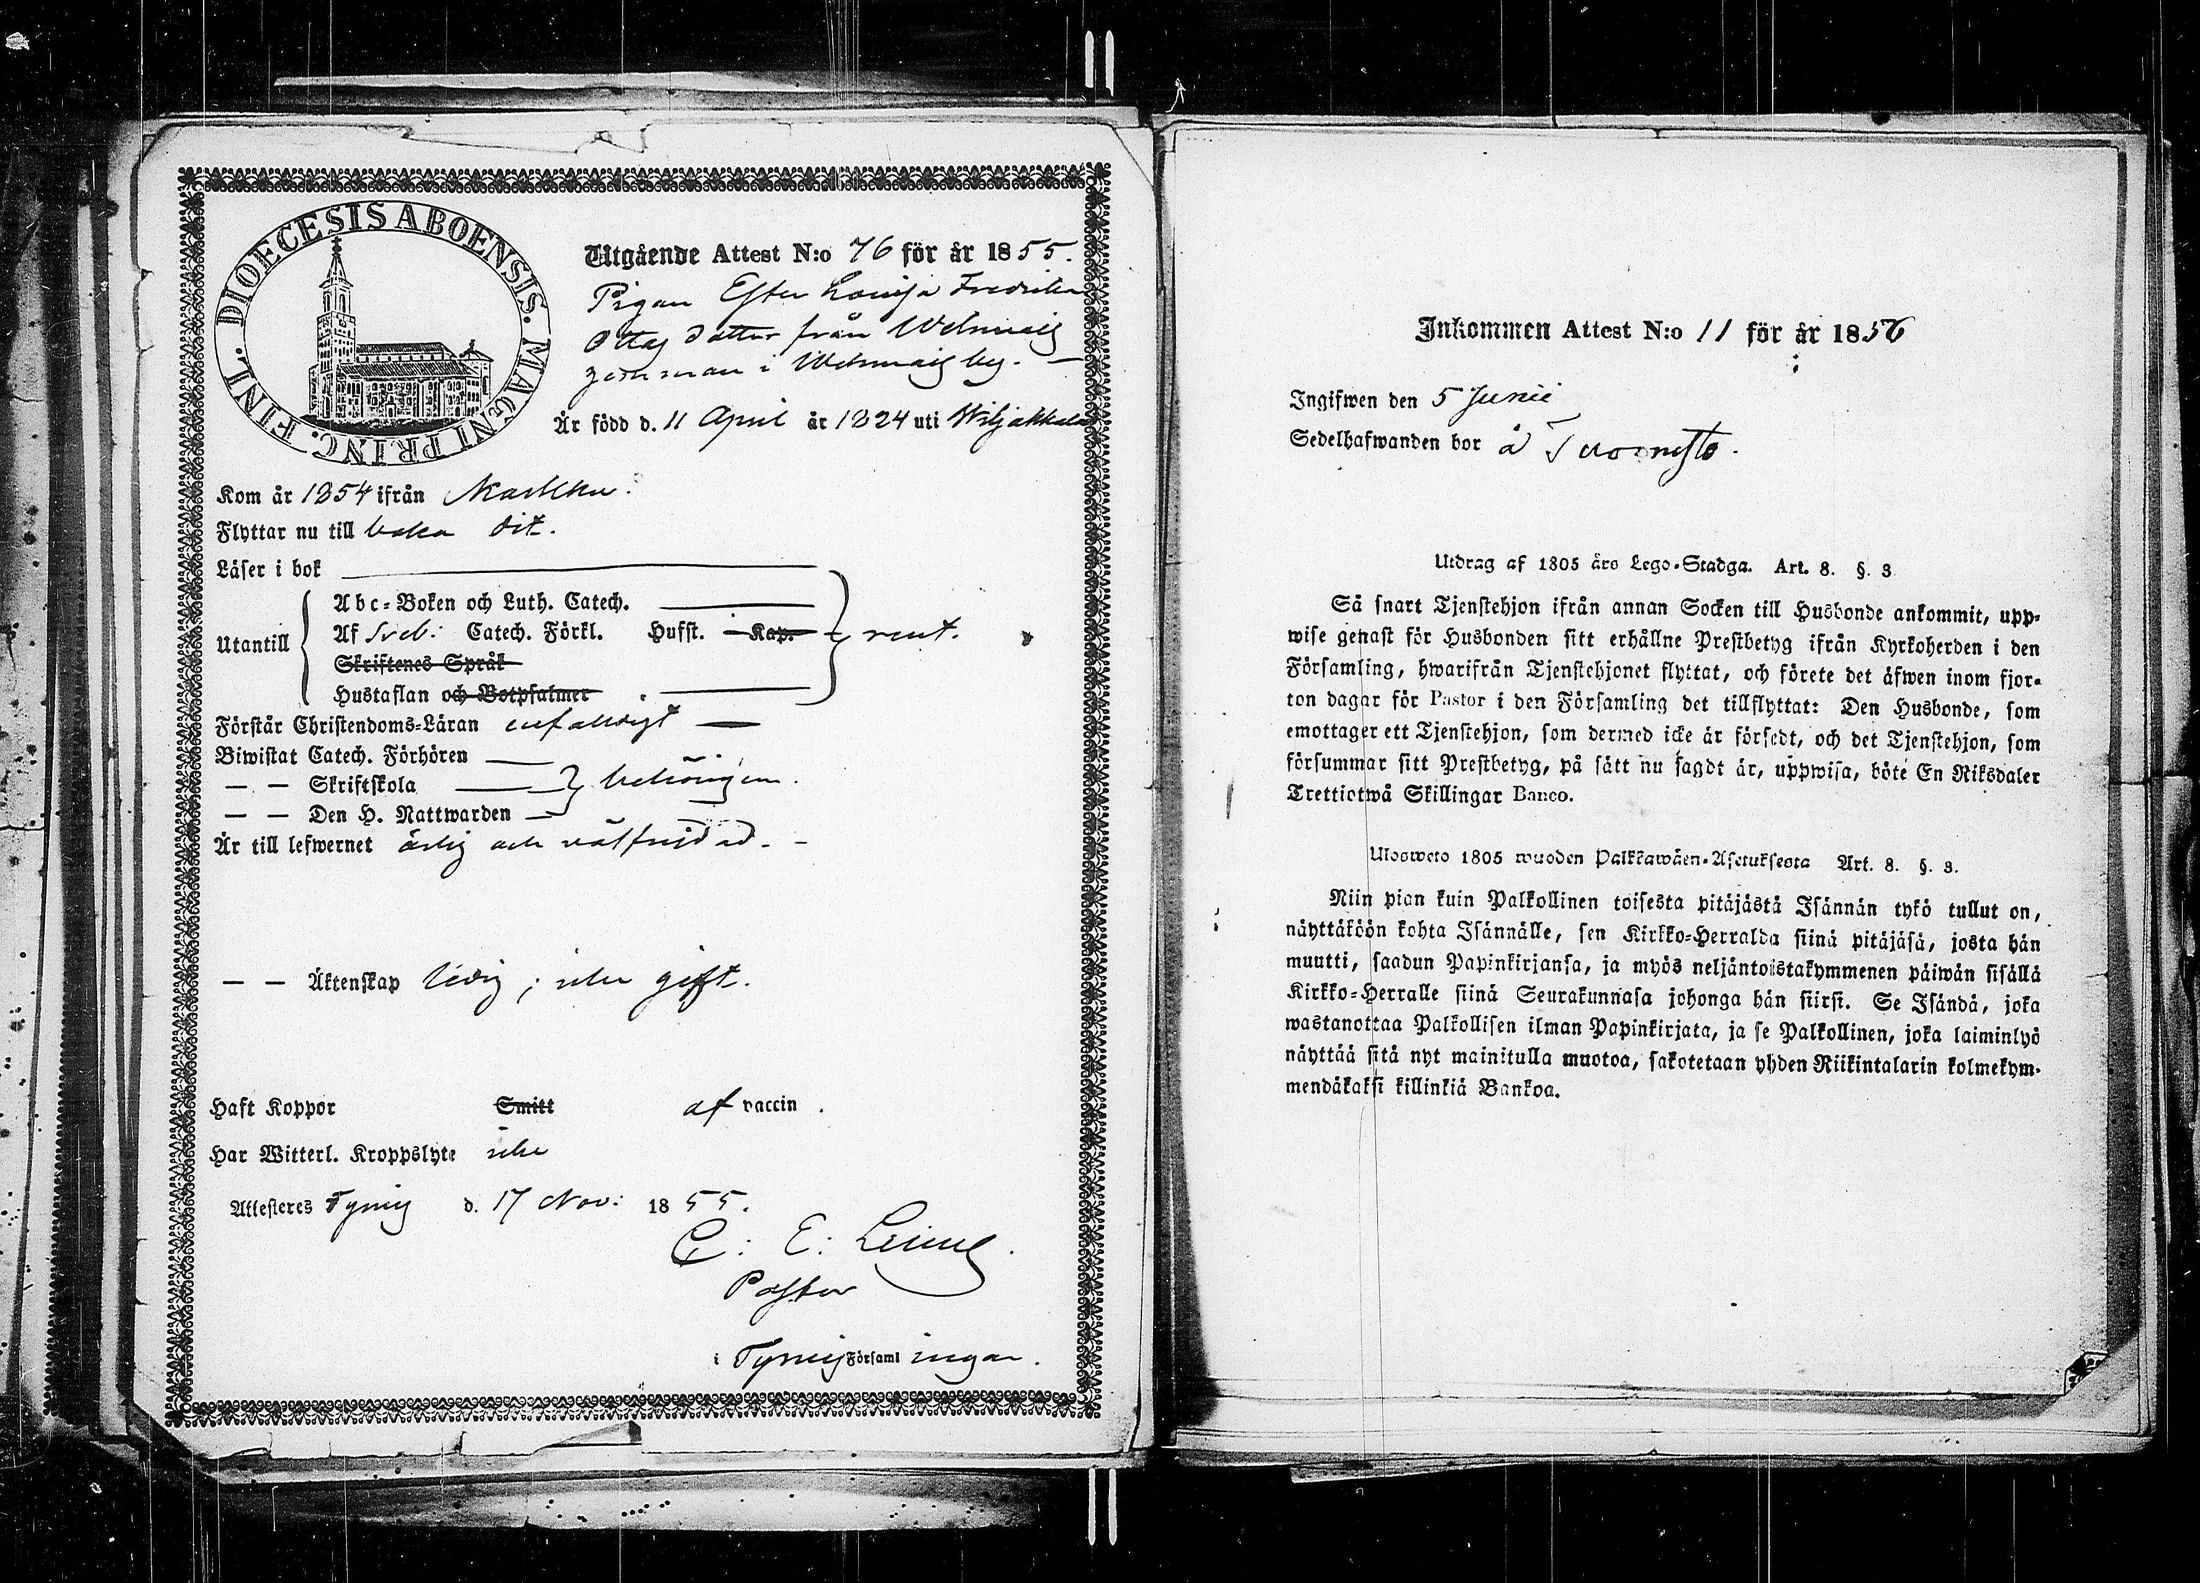 DIOECESIS ABOENSIS. MAGNI PRINC. FINL.
Utgående Attest N:o 76 för år 1855.
Pigan Ester Lovisa Fredrika
Ottas dotter från
i by.
Är född d. 11 April år 1824 uti Wiljakkala
Kom år 1854 ifrån Karkku.
Flyttar nu till baka dit.
Läser i bok
Utantill
Abc-Boken och Luth. Catech.
Af Sveb: Catech. Förkl. Hufst. Kap. rent.
Skriftenes Språk
Hustaflan och Botpsalmer
Förstår Christendoms-Läran enfaldigt
Biwistat Catech. Förhören
— — Skriftskola behörigen.
— — Den H. Nattwarden
Är till lefwernet ärlig och välfrejdad.
— — Äktenskap ledig; icke gift.
Haft Koppor Smitt af vaccin.
Har Witterl. Kroppslyte icke
Attesteres d. 17 Nov: 1855.
C: E:
Pastor
i Församlingar.
Inkommen Attest N:o 11 för år 1856
Ingifwen den 5 Junii
Sedelhafwanden bor å
Utdrag af 1805 års Lego-Stadga. Art. 8. §. 3
Så snart Tjenstehjon ifrån annan Socken till Husbonde ankommit, upp-
wise genast för Husbonden sitt erhållne Prestbetyg ifrån Kyrkoherden i den
Församling, hwarifrån Tjenstehjonet flyttat, och förete det äfwen inom fjor-
ton dagar för Pastor i den Församling det tillflyttat: Den Husbonde, som
emottager ett Tjenstehjon, som dermed icke är försedt, och det Tjenstehjon, som
försummar sitt Prestbetyg, på sätt nu sagdt är, uppwisa, böte En Riksdaler
Trettiotwå Skillingar Banco.
Ulosweto 1805 wuoden Palkkawäen-Asetuksesta Art. 8. §. 3.
Niin pian kuin Palkollinen toisesta pitäjästä Isännän tykö tullut on,
näyttäköön kohta Isännälle, sen Kirkko-Herralda siinä pitäjäsä, josta hän
muutti, saadun Papinkirjansa, ja myös neljäntoistakymmenen päiwän sisällä
Kirkko-Herralle siinä Seurakunnasa johonga hän siirsi. Se Isändä, joka
wastanottaa Palkollisen ilman Papinkirjata, ja se Palkollinen, joka laiminlyö
näyttää sitä nyt mainitulla muotoa, sakotetaan yhden Riikintalarin kolmekym-
mendäkaksi killinkiä Bankoa.